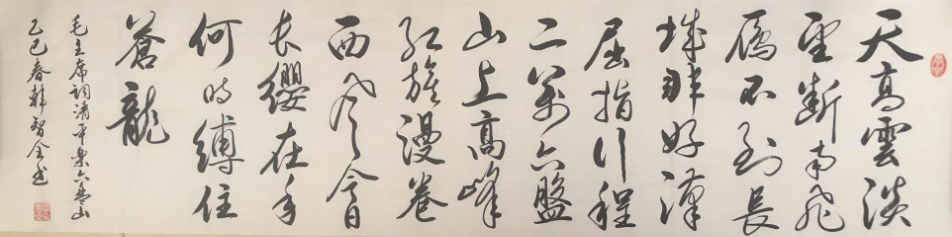 天高雲淡
望斷南飛
雁不到長
城非好漢
屈指行程
二萬六盤
山上高峰
红旗漫卷
西风今日
长纓在手
何时縛住
蒼龍
毛主席词清平樂六盘山
乙巳春韩智全书